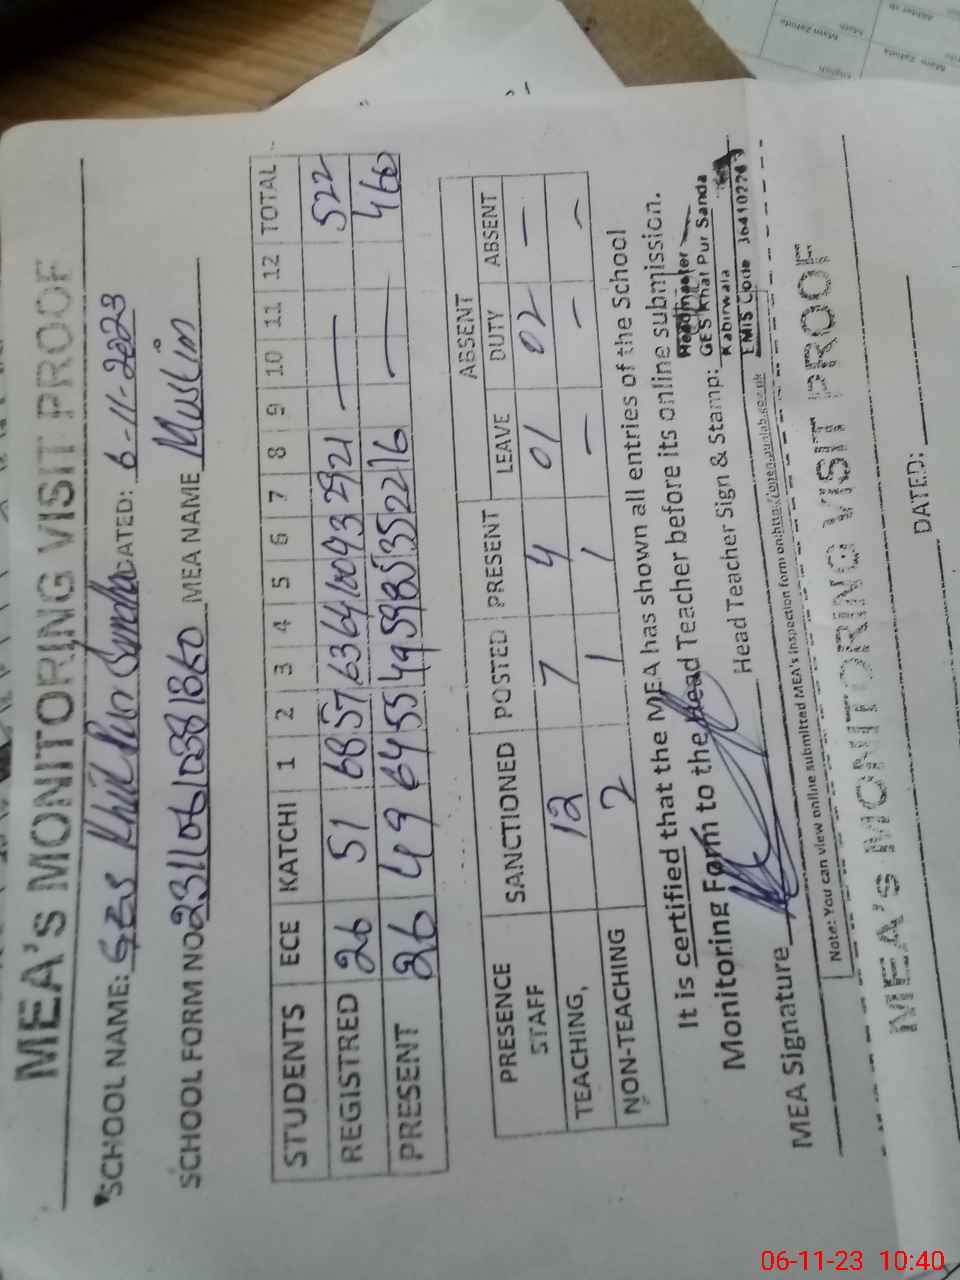 MEA'S MONITORING VISIT PROOF
SCHOOL NAME: GES Khil Pur Sunda DATED: 6-11-2023
SCHOOL FORM NO MEA NAME Muslim
STUDENTS ECE KATCHI 1 2 3 4 5 6 7 8 9 10 11 12 TOTAL
REGISTRED 26 51 68 57 63 64 100 43 29 21 — 522
PRESENT 26 49 64 55 49 59 85 35 22 16 — 460
PRESENCE STAFF SANCTIONED POSTED PRESENT ABSENT
LEAVE DUTY ABSENT
TEACHING, 12 7 4 01 02 —
NON-TEACHING 2 1 1 — — —
It is certified that the MEA has shown all entries of the School
Monitoring Form to the Head Teacher before its online submission.
MEA Signature Head Teacher Sign & Stamp:
Headmaster
GES Khal Pur Sanda
Kabirwala
EMIS Code
Note: You can view online submitted MEA's inspection form on:http://open.punjab.gov.pk
MEA'S MONITORING VISIT PROOF
DATED:
06-11-23 10:40